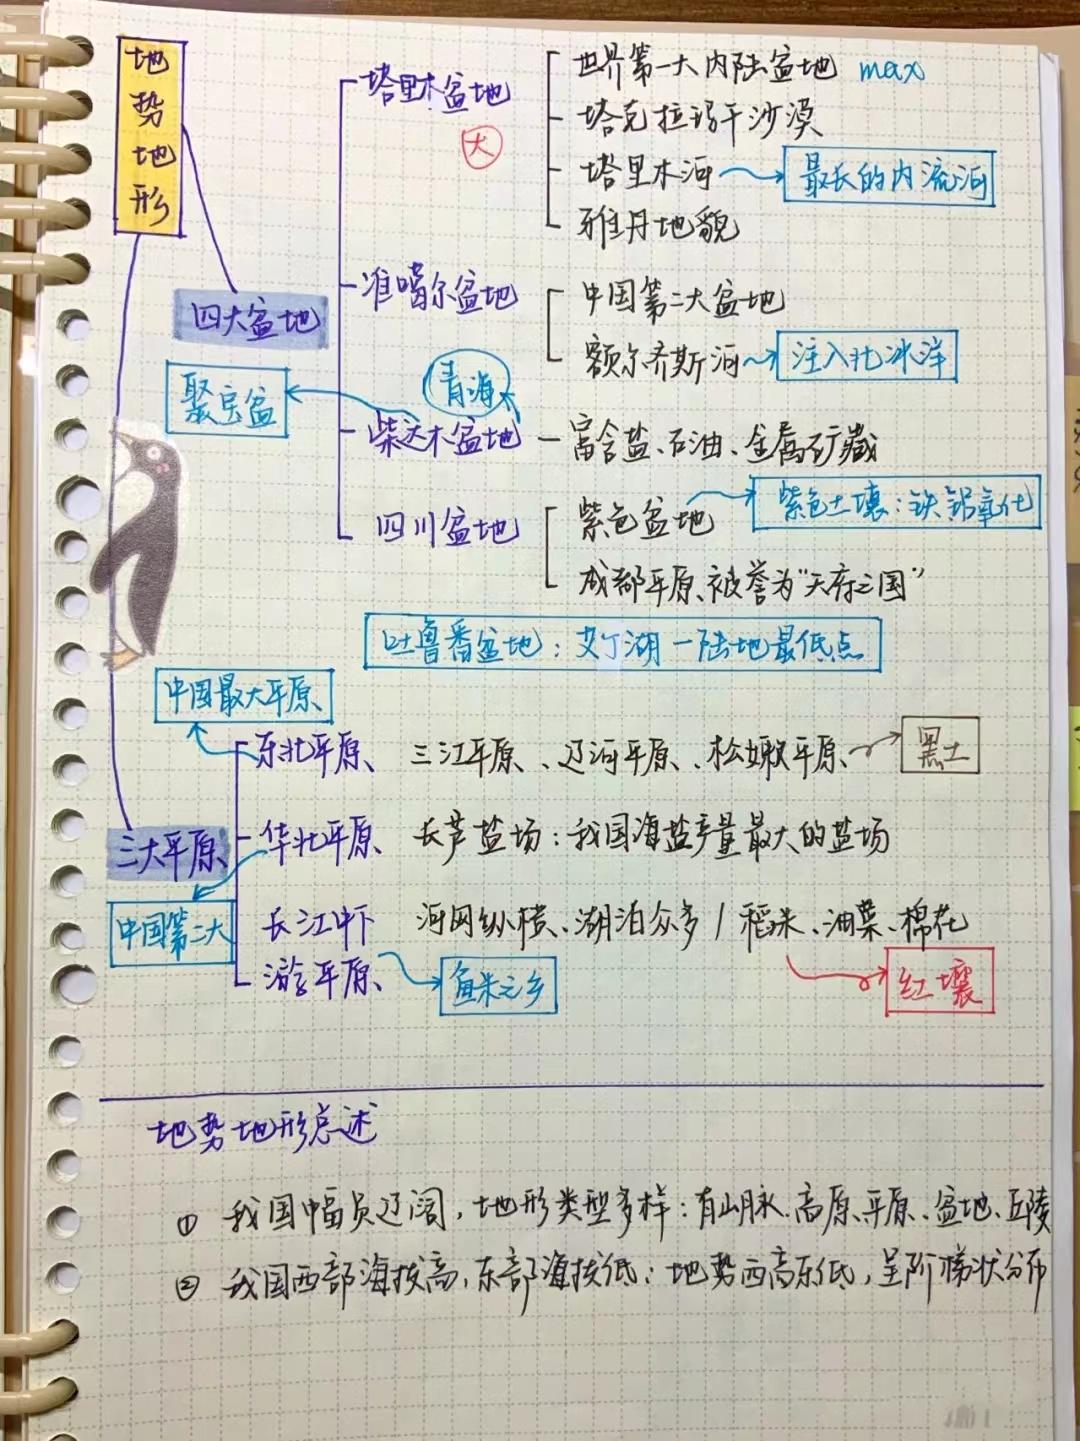 地势地形
四大盆地
塔里木盆地
大
世界第一大内陆盆地 max
塔克拉玛干沙漠
塔里木河 最长的内流河
雅丹地貌
准噶尔盆地
中国第二大盆地
额尔齐斯河 注入北冰洋
聚宝盆
青海
柴达木盆地 富含盐、石油、金属矿藏
四川盆地
紫色盆地 紫色土壤：铁铝氧化
成都平原、被誉为“天府之国”
吐鲁番盆地：艾丁湖—陆地最低点
三大平原
中国最大平原
东北平原、三江平原、辽河平原、松嫩平原 黑土
华北平原 长芦盐场：我国海盐产量最大的盐场
中国第二大
长江中下 河网纵横、湖泊众多 / 稻米、油菜、棉花
游平原 鱼米之乡 红壤
地势地形总述
① 我国幅员辽阔，地形类型多样：有山脉、高原、平原、盆地、丘陵
② 我国西部海拔高，东部海拔低；地势西高东低，呈阶梯状分布